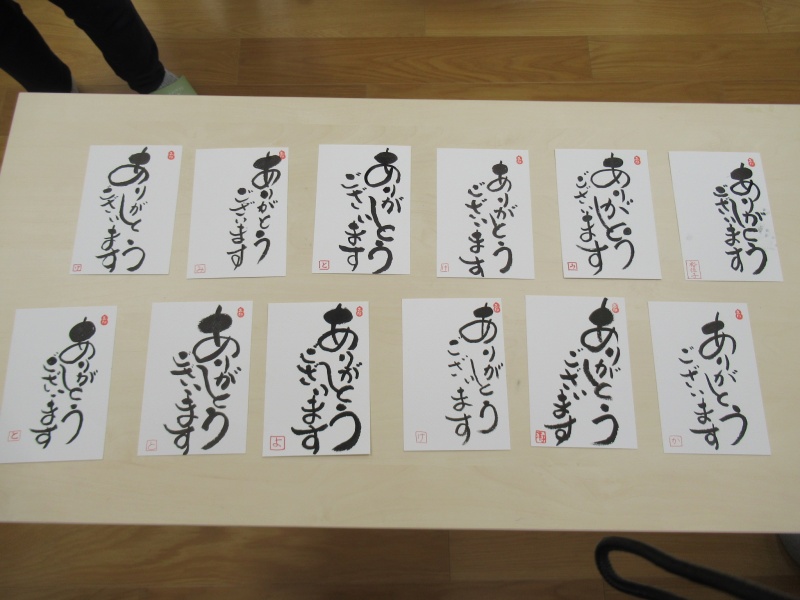 ありがとう
ございます
ありがとう
ございます
と
ありがとう
ございます
ありがとう
ございます
み
ありがとう
ございます
ありがとう
ございます
ありがとう
ございます
と
ありがとう
ございます
ありがとう
ございます
よ
ありがとう
ございます
け
ありがとう
ございます
ありがとう
ございます
か